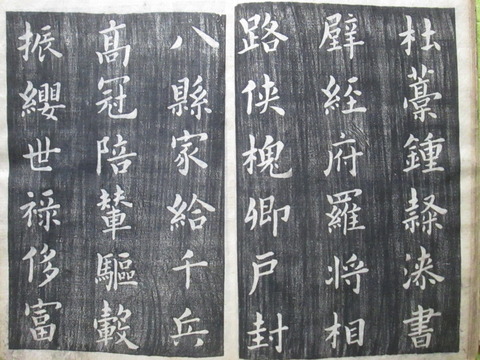 杜藁鍾隸漆書
壁經府羅將相
路俠槐卿戶封
八縣家給千兵
髙冠陪輦驅轂
振纓世祿侈富